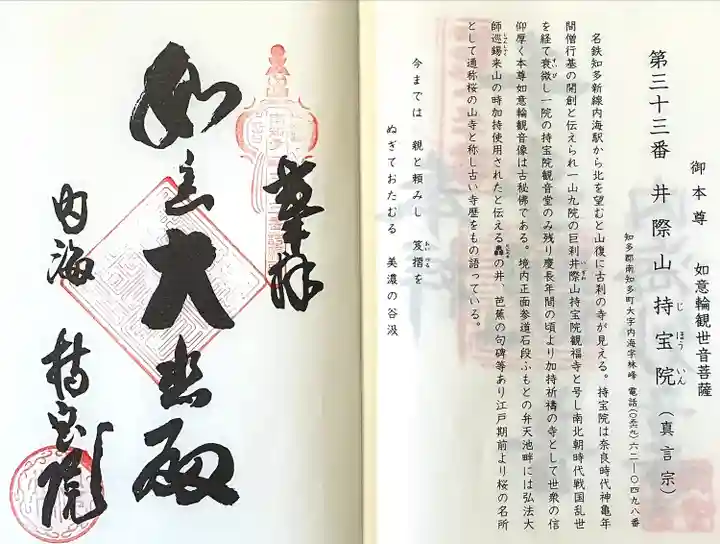 御本尊　如意輪観世音菩薩
第三十三番　井際山持宝院（真言宗）
じほういん
知多郡南知多町大字内海字林峰　電話（〇五六九）六二―〇四九八番
名鉄知多新線内海駅から北を望むと山復に古刹の寺が見える。持宝院は奈良時代神亀年
間僧行基の開創と伝えられ一山九院の巨刹井際山持宝院観福寺と号し南北朝時代戦国乱世
を経て衰微し一院の持宝院観音堂のみ残り慶長年間の頃より加持祈禱の寺として世衆の信
仰厚く本尊如意輪観音像は古秘佛である。境内正面参道石段ふもとの弁天池畔には弘法大
師巡錫来山の時加持使用されたと伝える の井、芭蕉の句碑等あり江戸期前より桜の名所
として通称桜の山寺と称し古い寺歴をもの語っている。
今までは　親と頼みし　笈摺を
おいづる
ぬぎておたむる　美濃の谷汲
奉拝
如意大悲殿
内海　持宝院